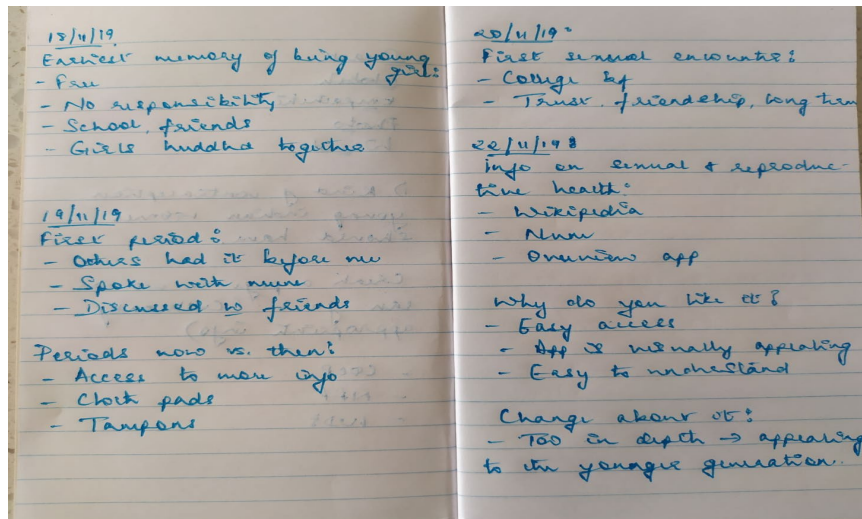 18/11/19
Earliest memory of being young
girl:
- Free
- No responsibility
- School, friends
- Girls huddled together
19/11/19
First period:
- Others had it before me
- Spoke with
- Discussed w friends
Periods now vs. then:
- Access to more info
- Cloth pads
- Tampons
20/11/19:
First sexual encounter:
- College bf
- Trust, friendship, long term
22/11/19:
Info on sexual & reproduc-
tive health:
- Wikipedia
-
- app
Why do you like it?
- Easy access
- App is visually appealing
- Easy to understand
Change about it:
- Too in depth → appealing
to the younger generation.